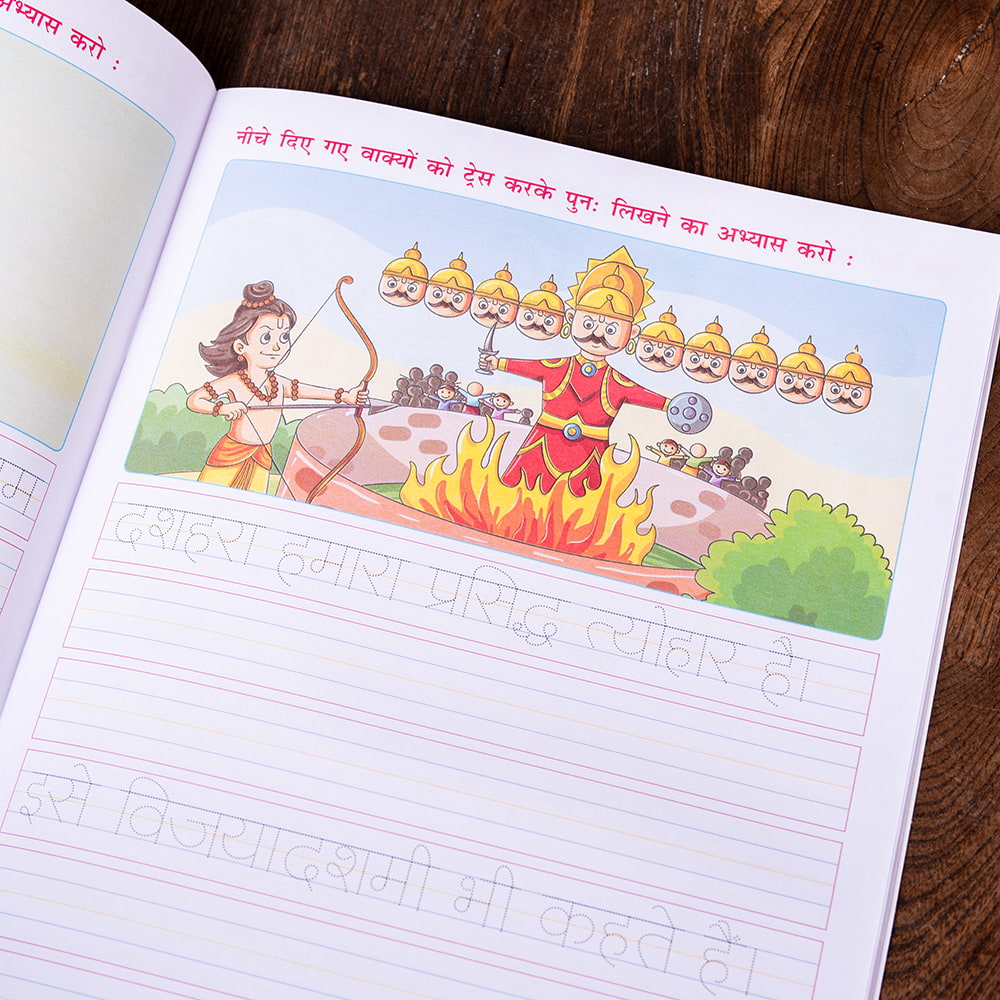 अभ्यास करो :
नीचे दिए गए वाक्यों को ट्रेस करके पुनः लिखने का अभ्यास करो :
दशहरा हमारा प्रसिद्ध त्योहार है।
इसे विजयादशमी भी कहते हैं।